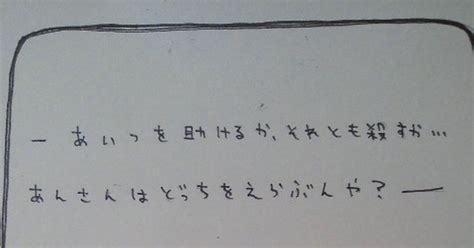 ― あいつを助けるか、それとも殺すか…
あんさんはどっちをえらぶんや？―